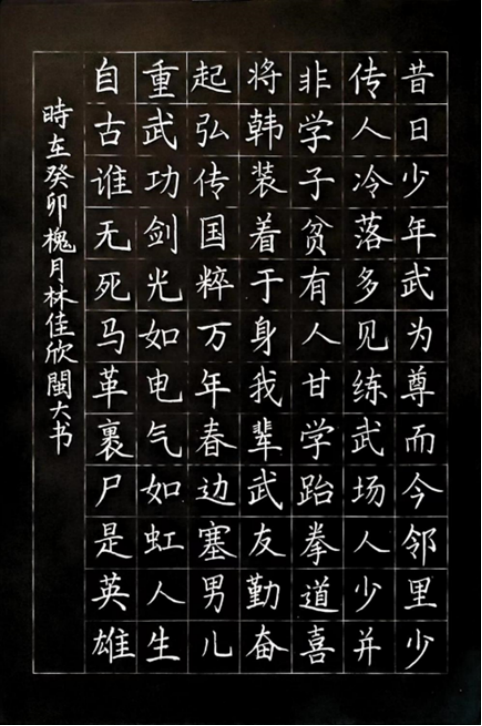 昔日少年武为尊而今邻里少
传人冷落多见练武场人少并
非学子贫有人甘学跆拳道喜
将韩装着于身我辈武友勤奋
起弘传国粹万年春边塞男儿
重武功剑光如电气如虹人生
自古谁无死马革裹尸是英雄
時在癸卯槐月林佳欣閩大书